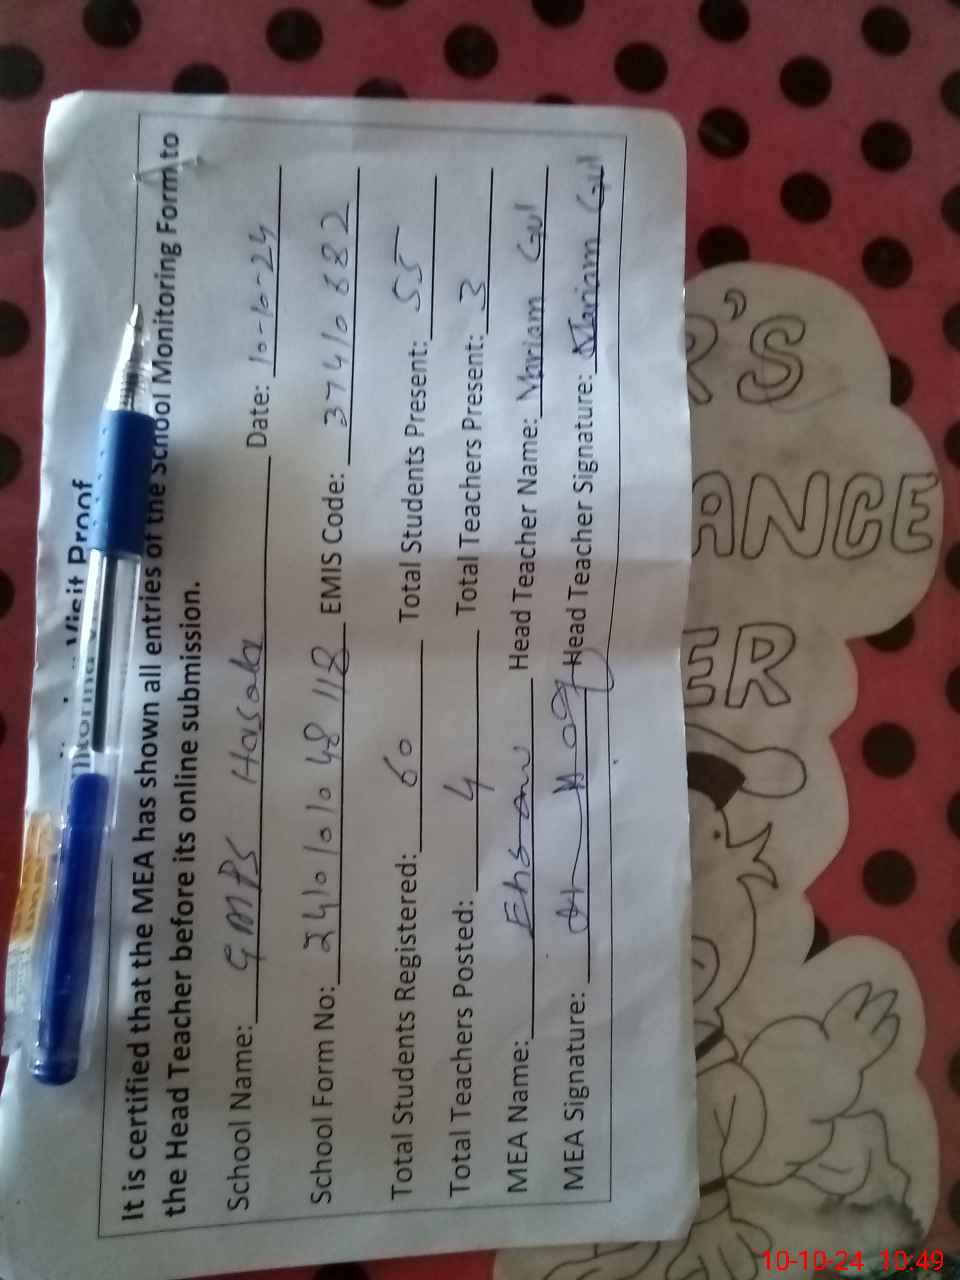 Visit Proof
It is certified that the MEA has shown all entries of the School Monitoring Form to
the Head Teacher before its online submission.
School Name: GMPS Hasola Date: 10-10-24
School Form No: 24101048118 EMIS Code: 37410382
Total Students Registered: 60 Total Students Present: 55
Total Teachers Posted: 4 Total Teachers Present: 3
MEA Name: Ehsan Head Teacher Name: Mariam Gul
MEA Signature: Head Teacher Signature: Mariam Gul
'S
ANCE
ER
10-10-24 10:49